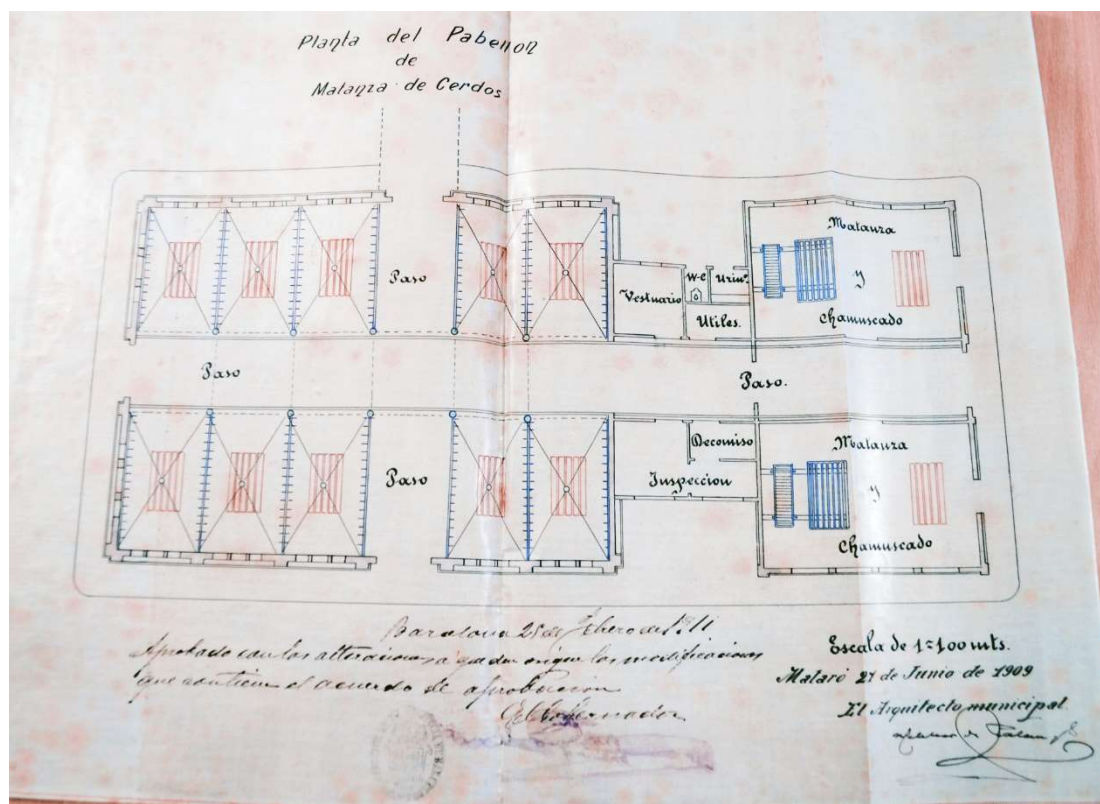 Planta del Pabellon
de
Matanza de Cerdos
Matanza
y
Chamuscado
Paso
Vestuario
W-C
Urinº.
Utiles.
Paso
Paso.
Paso
Decomiso
Inspeccion
Matanza
y
Chamuscado
Barcelona 25 de Febrero de 1911
Aprobado con las alteraciones a que dan origen las modificaciones
que contiene el acuerdo de aprobacion
El Gobernador
Escala de 1=100 mts.
Mataró 21 de Junio de 1909
El Arquitecto municipal